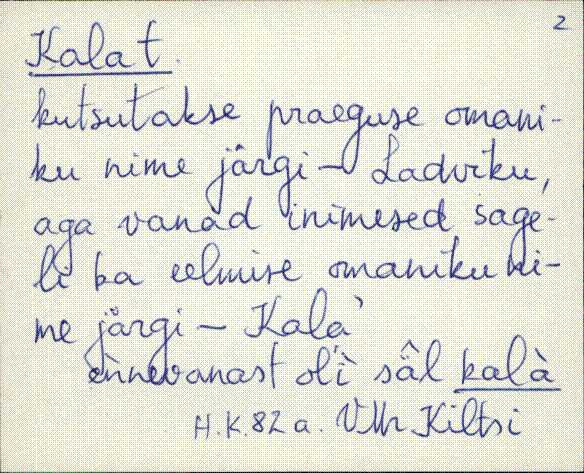 2
Kala t.
kutsutakse praeguse omani-
ku nime järgi – Ladviku,
aga vanad inimesed sage-
li ka eelmise omaniku ni-
me järgi – Kala`
ennevanast ol'i säl kalà
H.K. 82 a. VMr Kiltsi